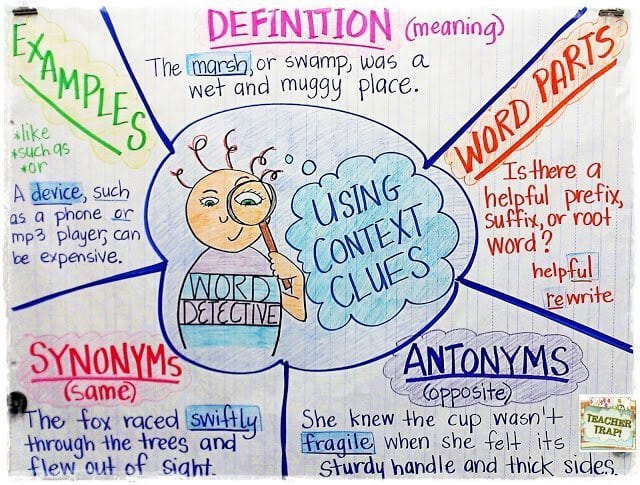 DEFINITION (meaning)
The marsh, or swamp, was a
wet and muggy place.
EXAMPLES
*like
*such as
*or
A device, such
as a phone or
mp3 player, can
be expensive.
WORD PARTS
Is there a
helpful prefix,
suffix, or root
word?
helpful
rewrite
USING
CONTEXT
CLUES
WORD
DETECTIVE
SYNONYMs
(same)
The fox raced swiftly
through the trees and
flew out of sight.
ANTONYMS
(opposite)
She knew the cup wasn't
fragile when she felt its
sturdy handle and thick sides.
TEACHER
TRAP!